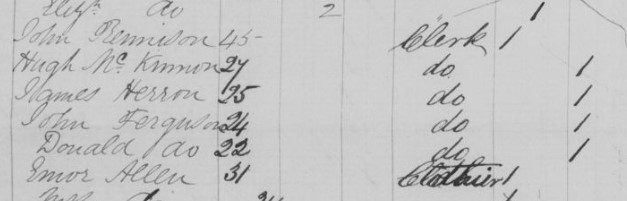 Elizth do 2 1
John Rennison 45 Clerk 1
Hugh Mc Kinnon 27 do 1
James Herron 25 do 1
John Ferguson 24 do 1
Donald do 22 do 1
Emor Allen 31 Clothier 1
Mrs